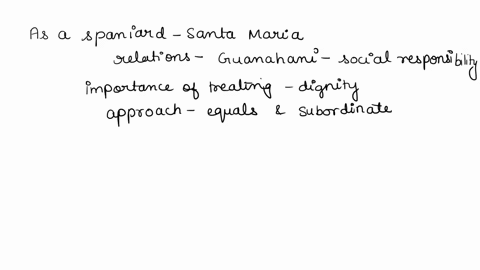 As a spaniard - Santa Maria
relations - Guanahani - social responsibility
importance of treating - dignity
approach - equals & subordinate